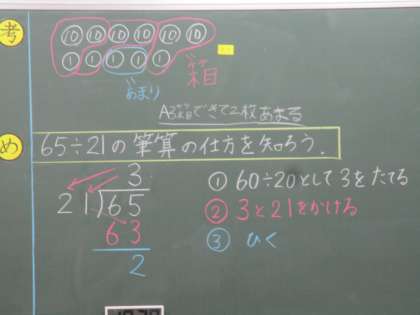 考
⑩ ⑩ ⑩ ⑩ ⑩ ⑩
⑩ ① ① ① ①
あまり
A できて2枚あまる
め 65÷21の筆算の仕方を知ろう.
3
21)65
63
2
① 60÷20として3をたてる
② 3と21をかける
③ ひく